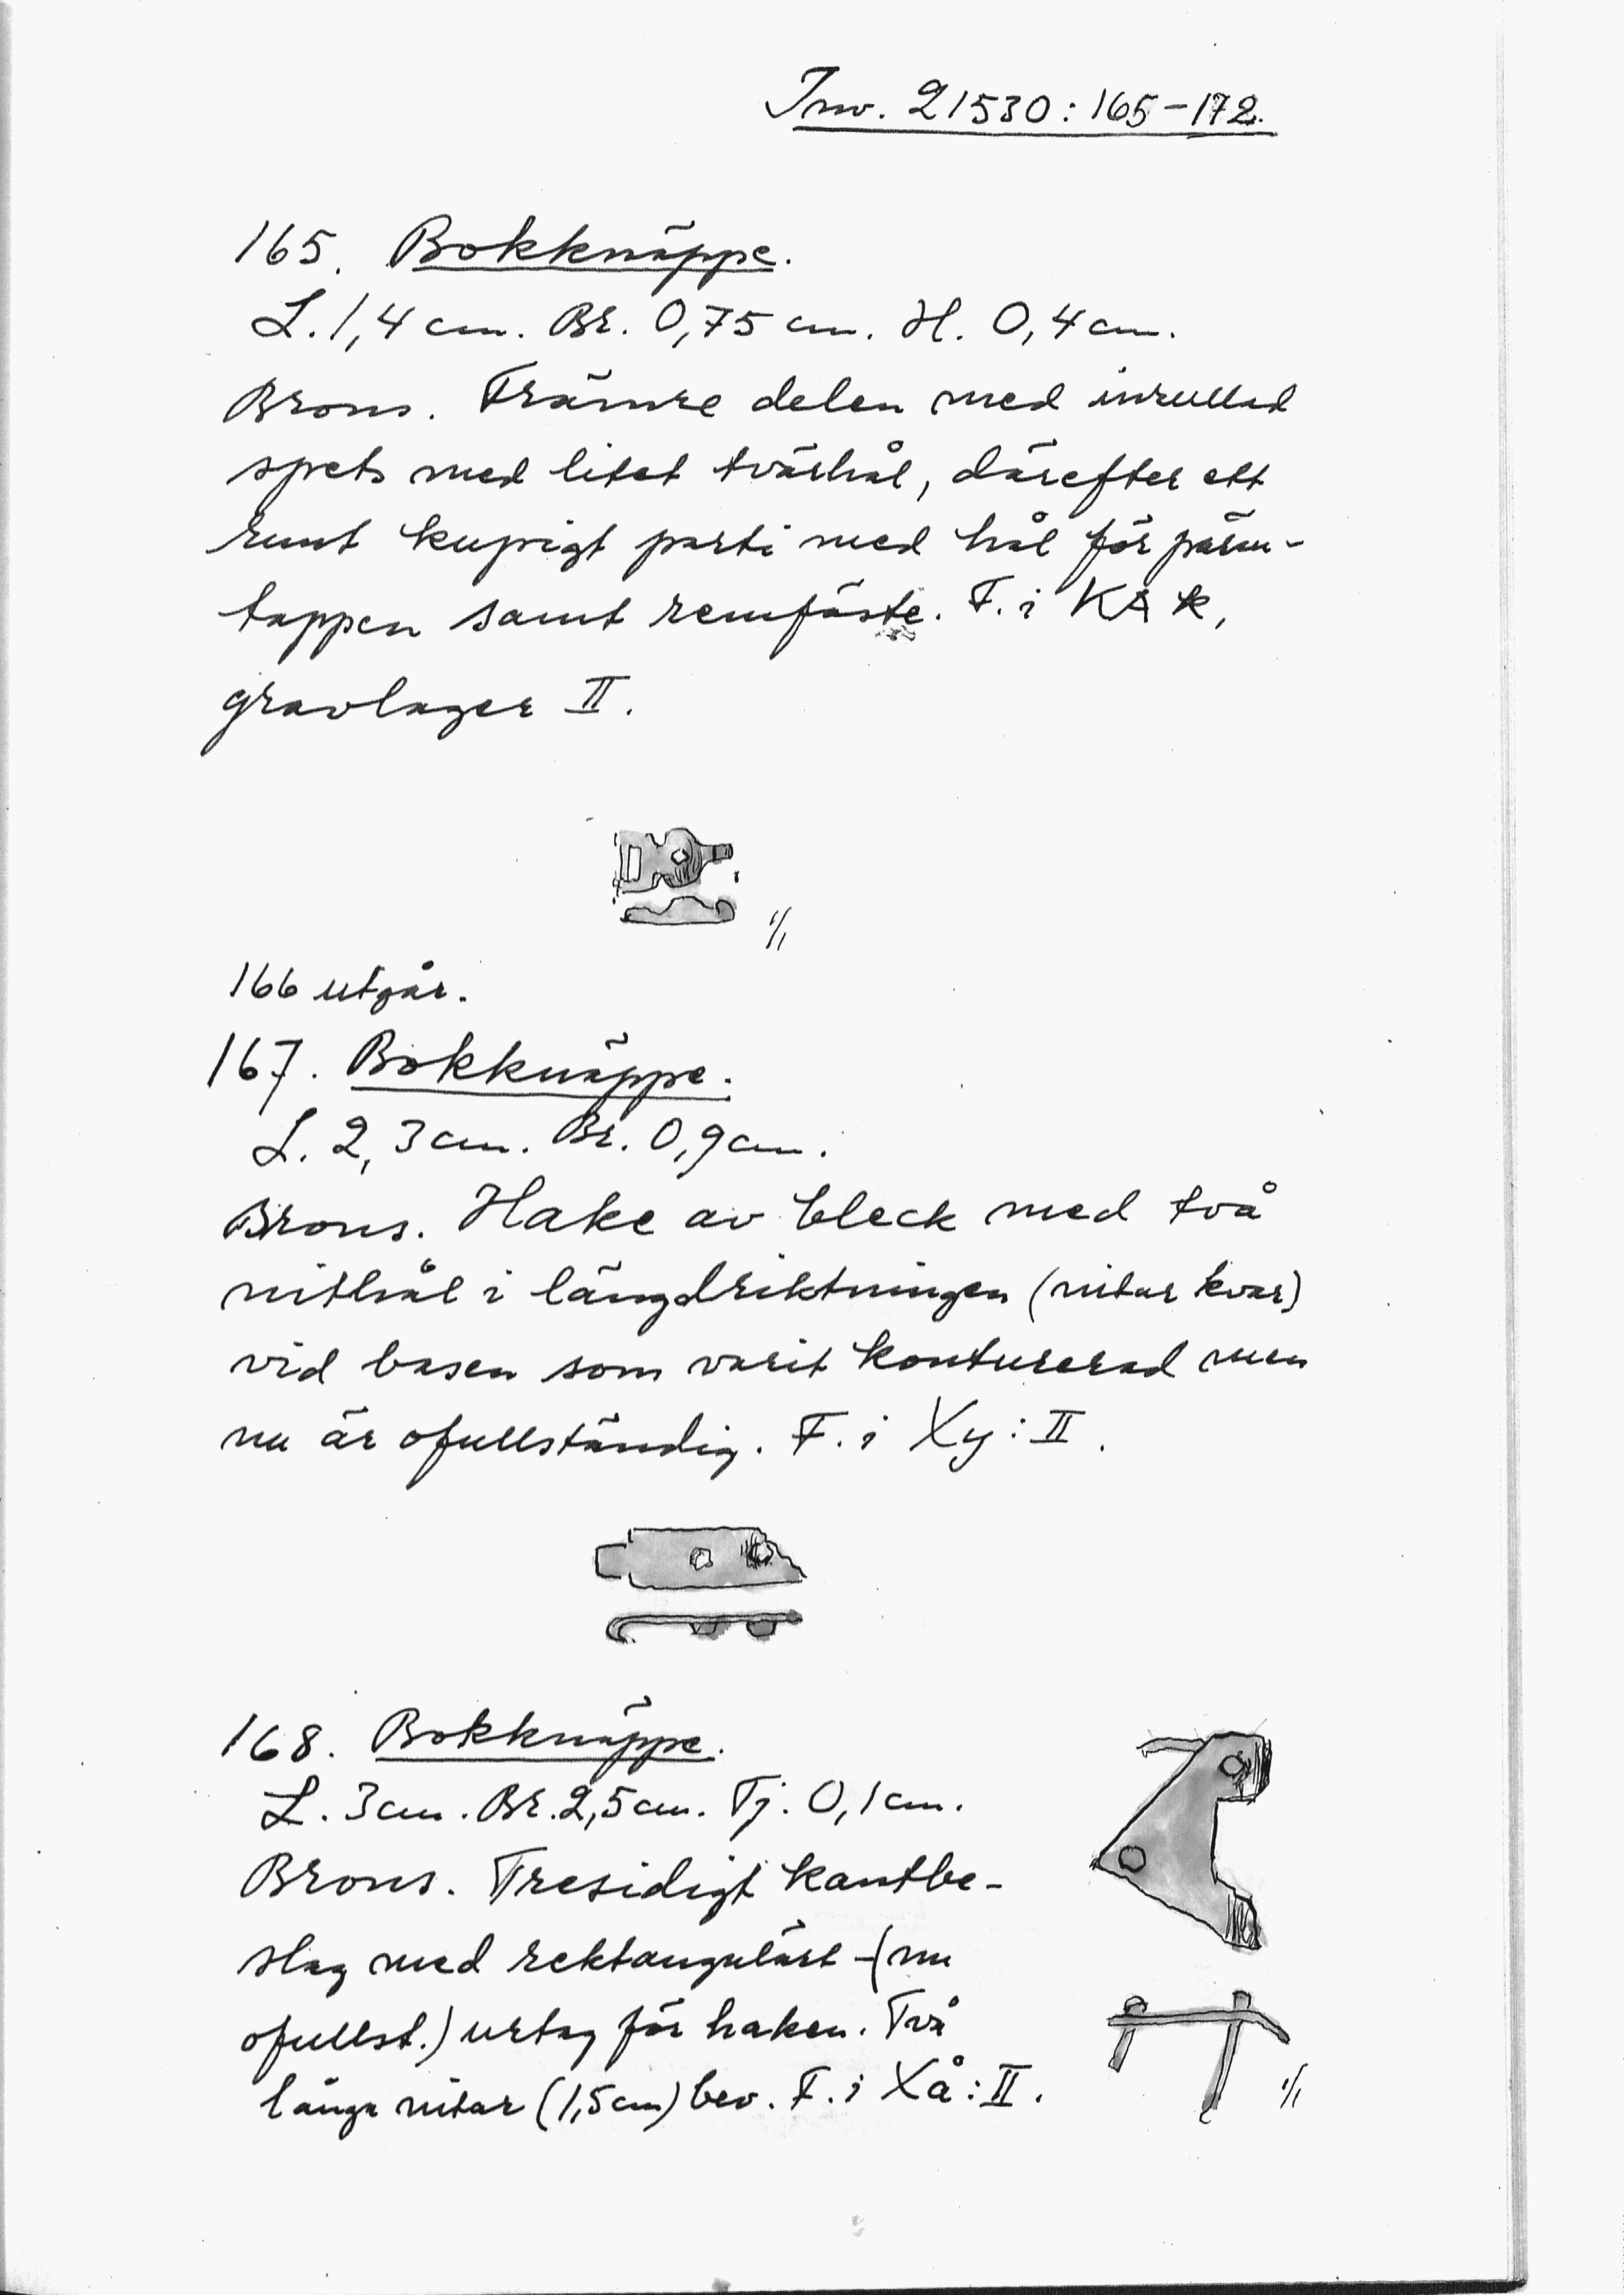 Inv. 21530:165–172.
165. Bokknäppe.
L. 1,4 cm. Br. 0,75 cm. H. 0,4 cm.
Brons. Främre delen med inrullad
spets med litet tvärhål, därefter ett
runt kupigt parti med hål för pärm-
tappen samt remfäste. F. i KAk,
gravlager II.
1/1
166 utgår.
167. Bokknäppe.
L. 2,3 cm. Br. 0,9 cm.
Brons. Hake av bleck med två
nithål i längdriktningen (nitar kvar)
vid basen som varit konturerad men
nu är ofullständig. F. i Xy:II.
168. Bokknäppe.
L. 3 cm. Br. 2,5 cm. Tj. 0,1 cm.
Brons. Tresidigt kantbe-
slag med rektangulärt (nu
ofullst.) urtag för haken. Två
långa nitar (1,5 cm) bev. F. i Xå:II.
1/1